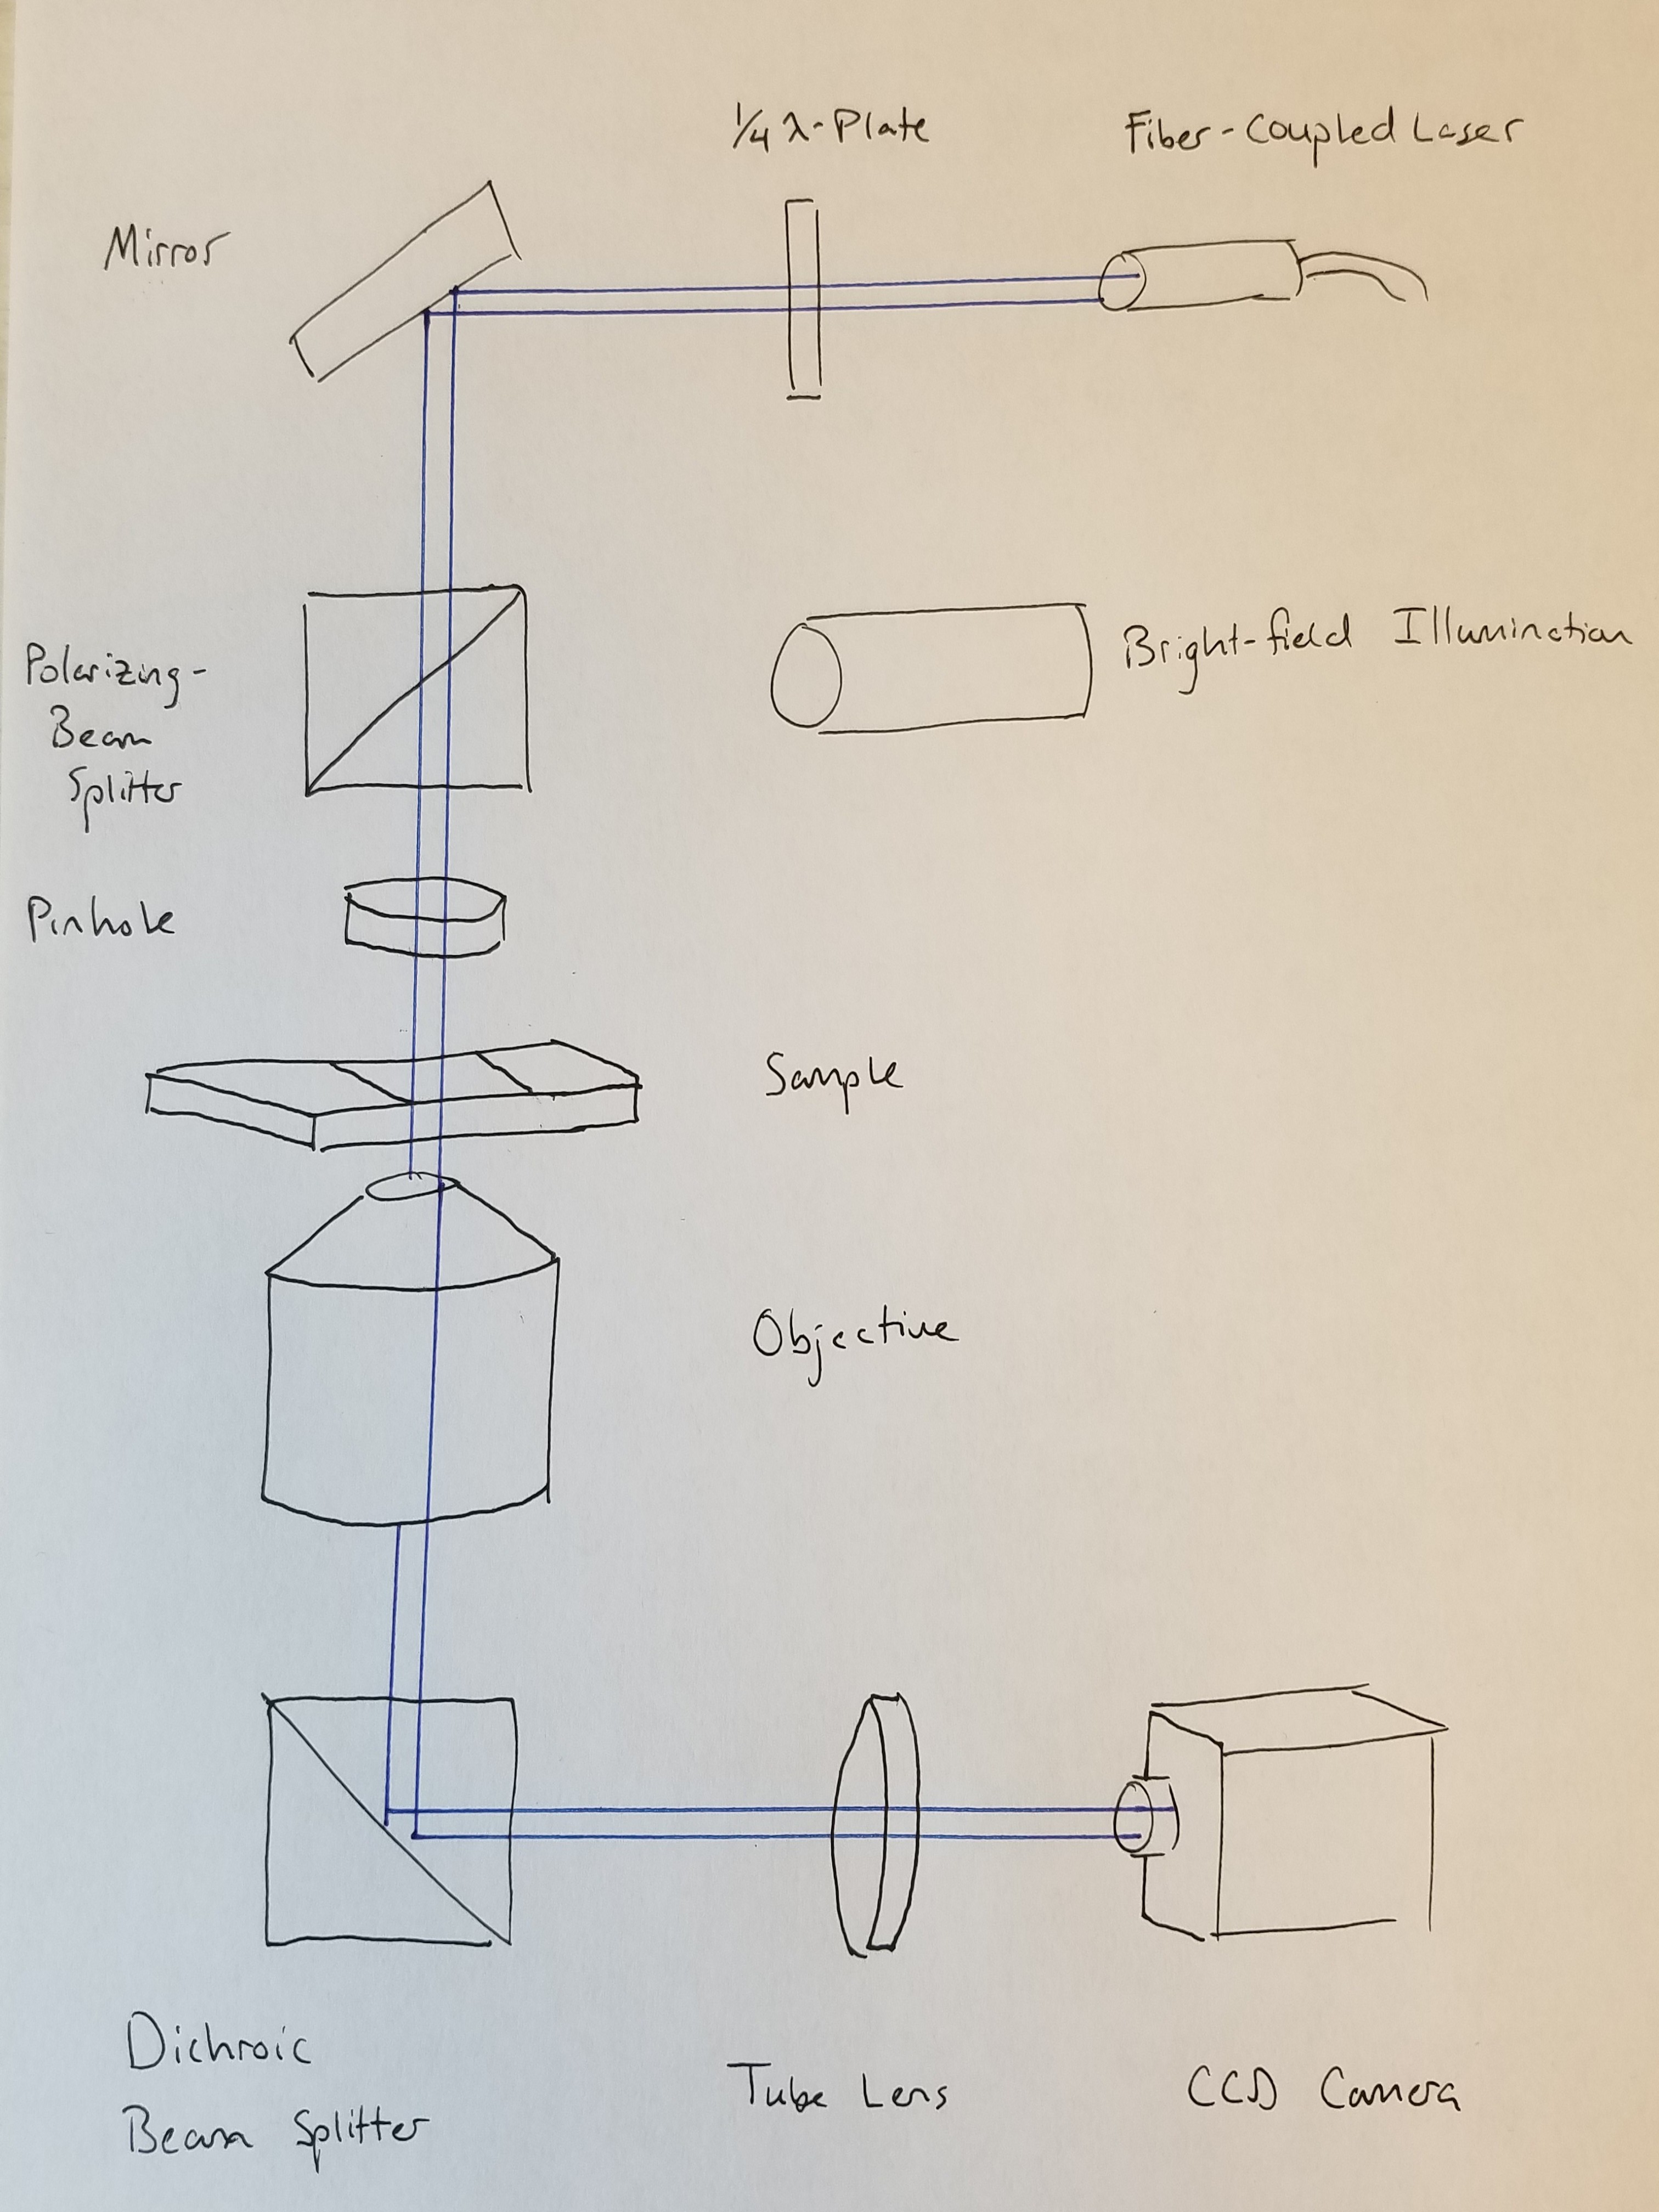 1/4 λ-Plate
Fiber-Coupled Laser
Mirror
Polarizing-
Beam
Splitter
Bright-field Illumination
Pinhole
Sample
Objective
Dichroic
Beam Splitter
Tube Lens
CCD Camera